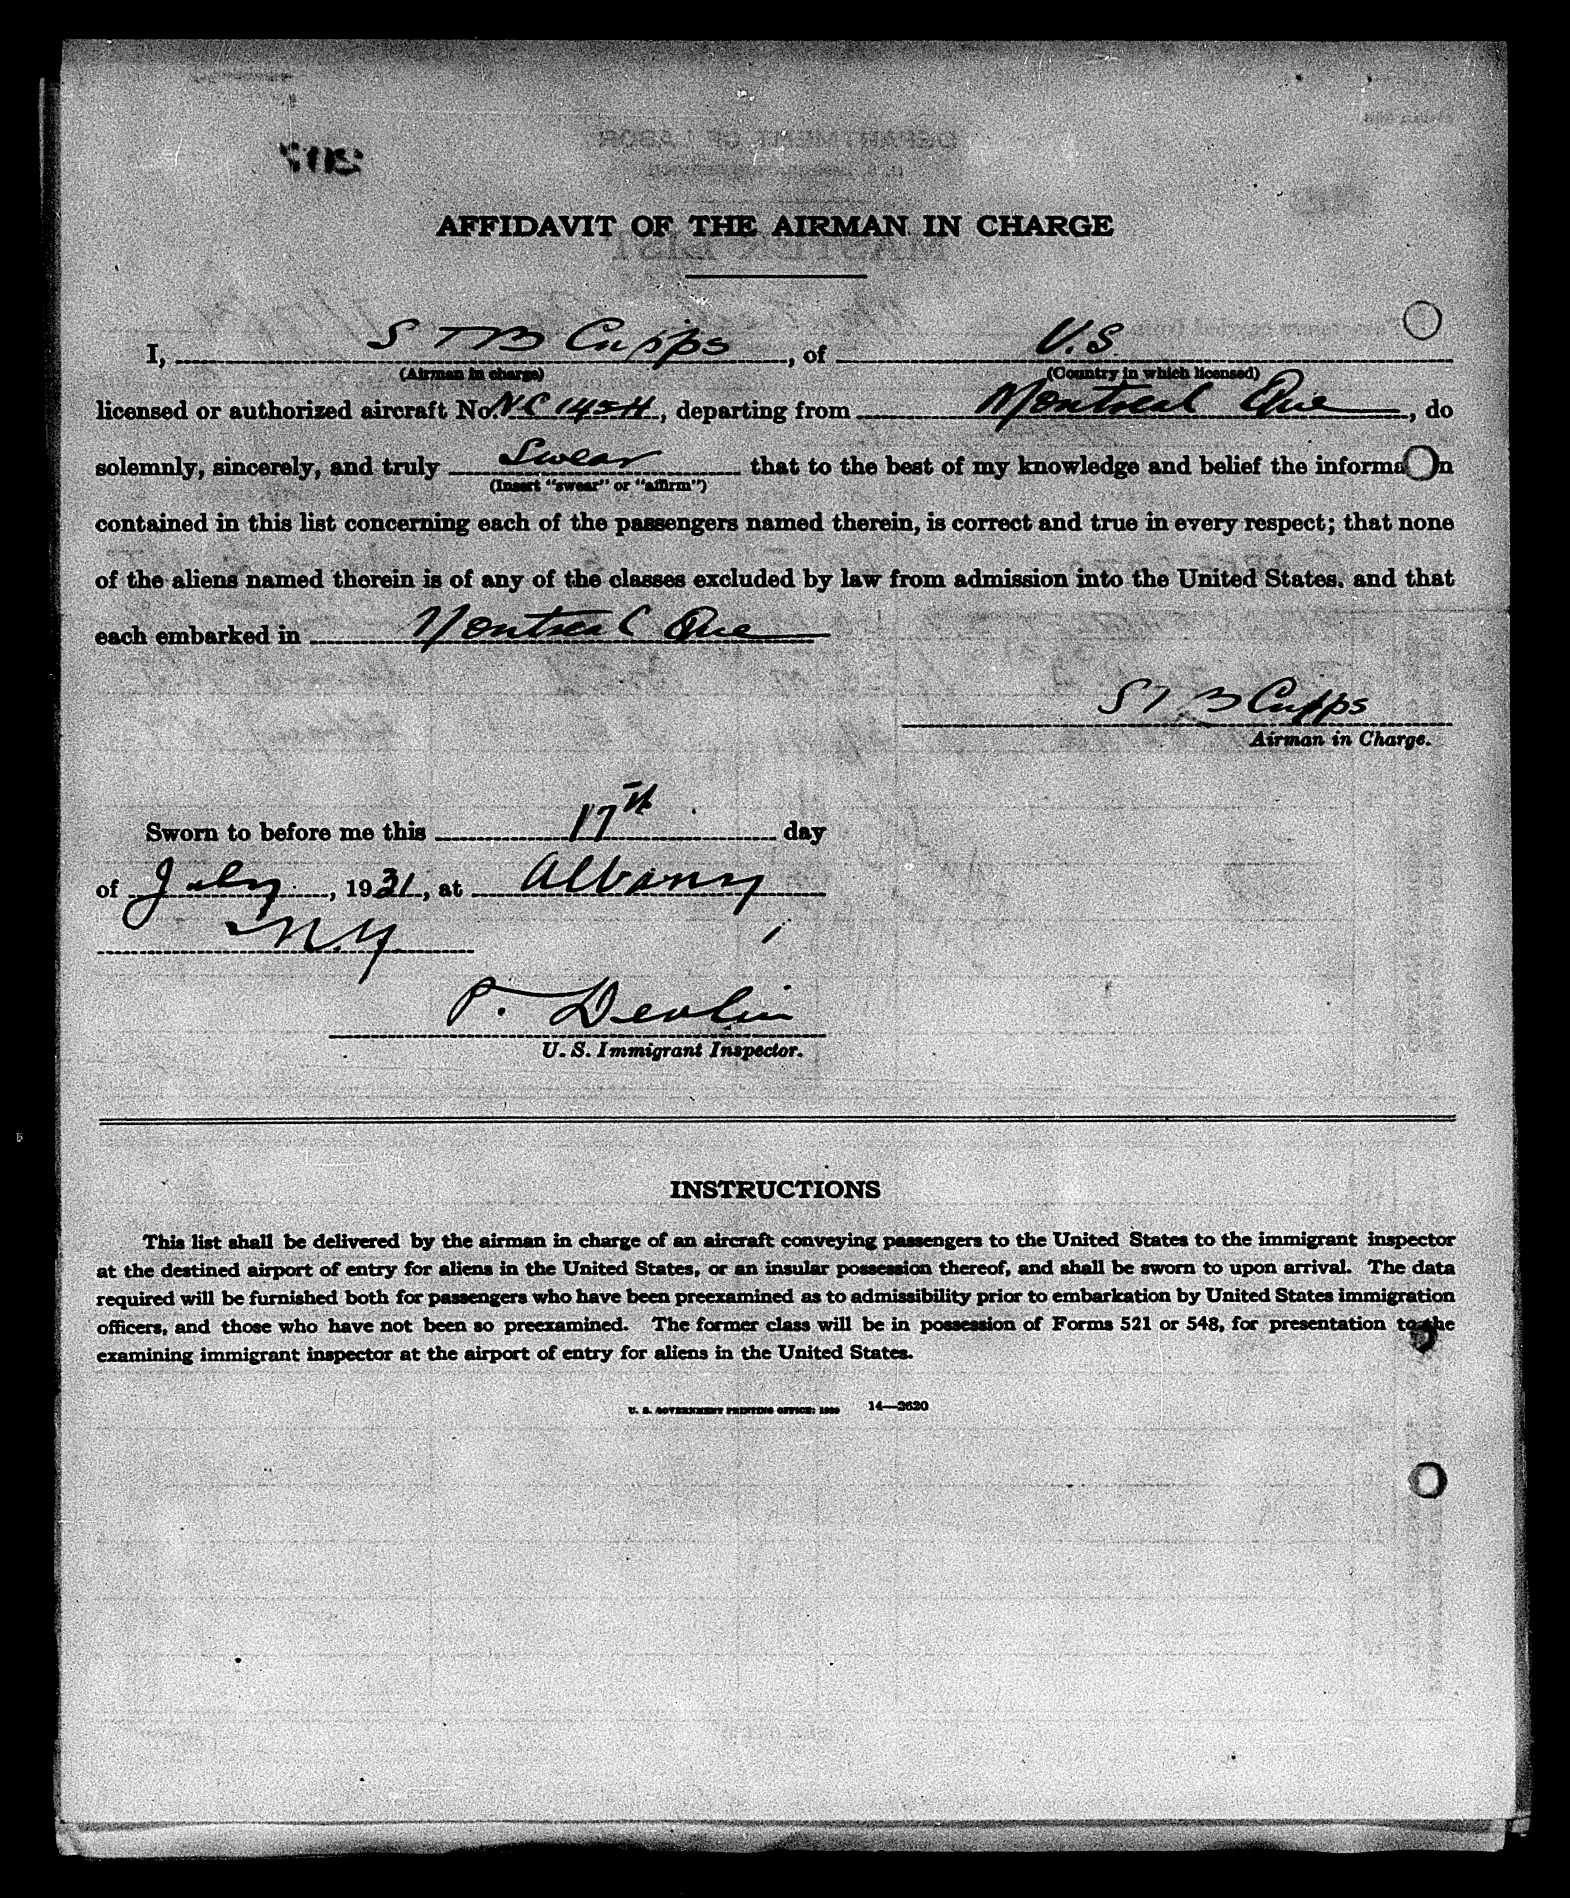 AFFIDAVIT OF THE AIRMAN IN CHARGE
I, S T B Cupps, of U.S.
(Airman in charge) (Country in which licensed)
licensed or authorized aircraft No. NC 145H, departing from Montreal Que, do
solemnly, sincerely, and truly Swear that to the best of my knowledge and belief the informa n
(Insert "swear" or "affirm")
contained in this list concerning each of the passengers named therein, is correct and true in every respect; that none
of the aliens named therein is of any of the classes excluded by law from admission into the United States, and that
each embarked in Montreal Que
S T B Cupps
Airman in Charge.
Sworn to before me this 17th day
of July, 1931, at Albany
N.Y.
P. Devlin
U. S. Immigrant Inspector.
INSTRUCTIONS
This list shall be delivered by the airman in charge of an aircraft conveying passengers to the United States to the immigrant inspector
at the destined airport of entry for aliens in the United States, or an insular possession thereof, and shall be sworn to upon arrival. The data
required will be furnished both for passengers who have been preexamined as to admissibility prior to embarkation by United States immigration
officers, and those who have not been so preexamined. The former class will be in possession of Forms 521 or 548, for presentation to the
examining immigrant inspector at the airport of entry for aliens in the United States.
U. S. GOVERNMENT PRINTING OFFICE: 14—2620